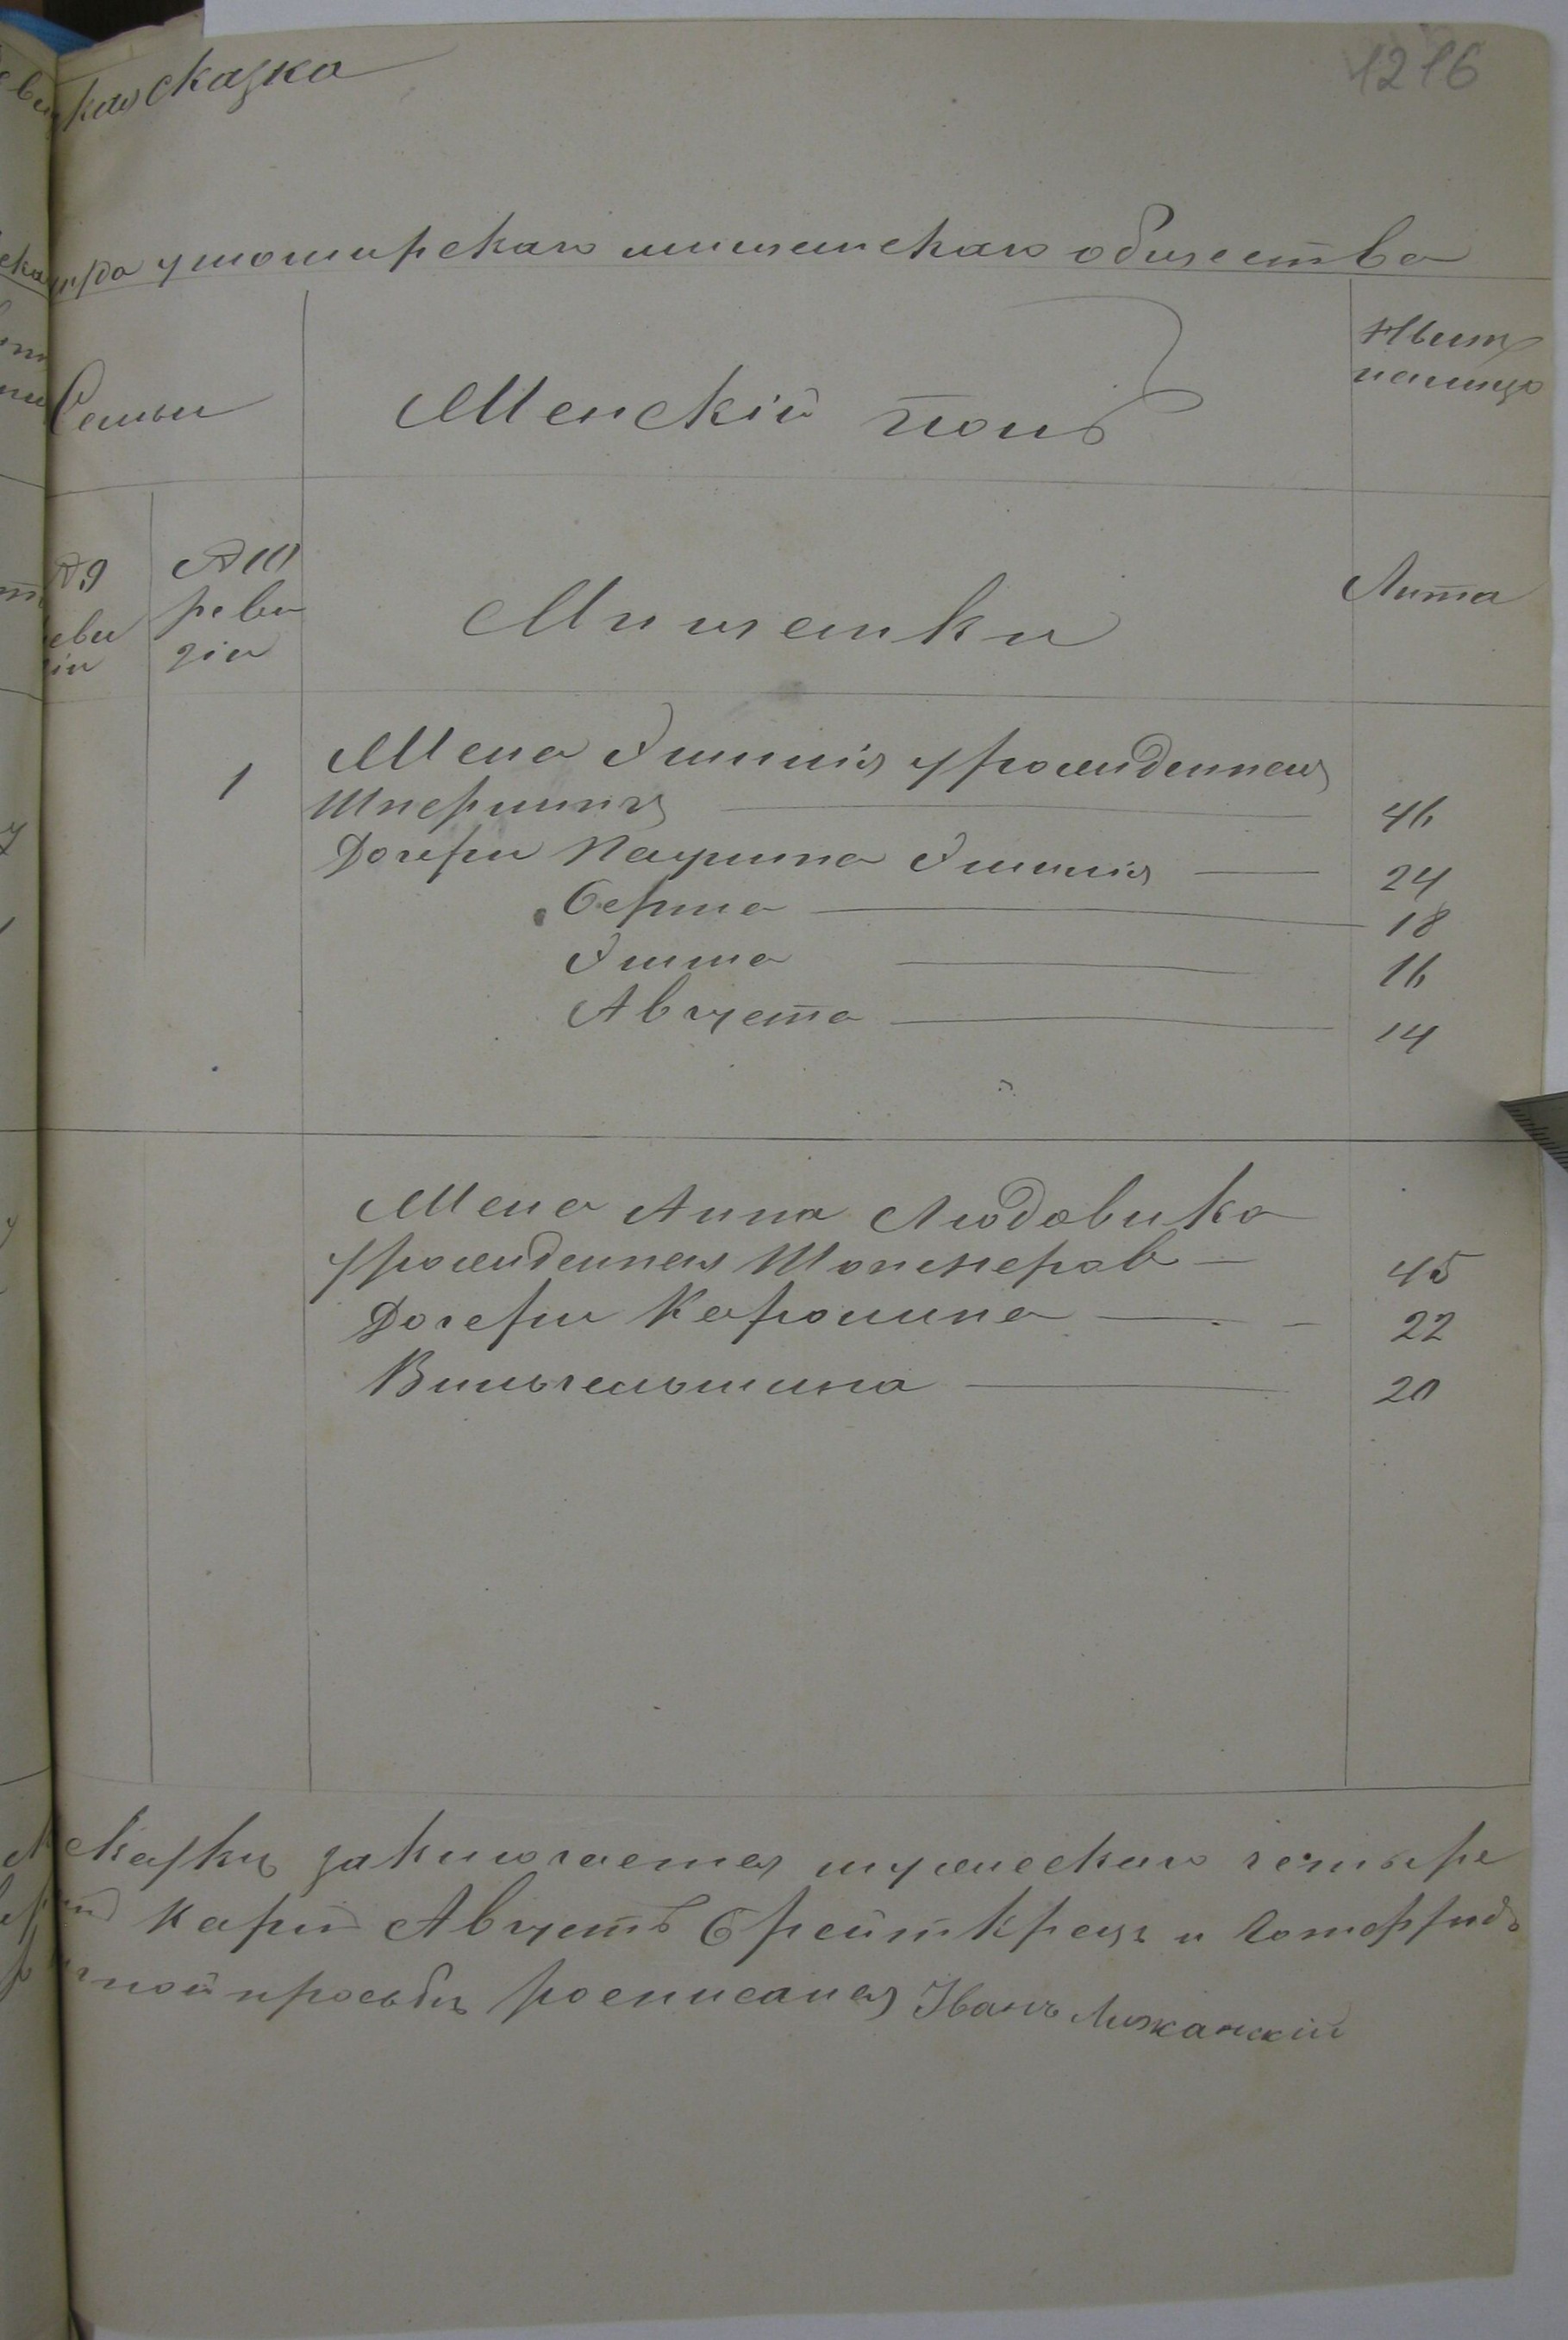 1216
кая сказка
ушомирскаго мищанскаго общества
Семьи
Женскій полъ
Ныне
налицо
№ 9
реви
зіи
№ 10
реви
зіи
Мищанки
Лита
1
Жена Эмилія урожденная
Шперлинг 46
Дочери Паулина Эмилія 24
Берта 18
Эмма 16
Августа 14
Жена Анна Людовика
урожденная 45
Дочери Каролина 22
Вильгельмина 20
сказки заключается мужескаго четыре
Карл Августъ Брейткрец и Готфридъ
просьби росписался Іванъ Лижанскій